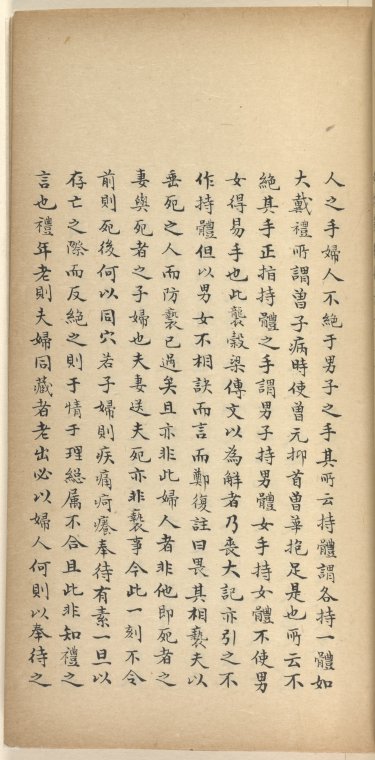 人之手婦人不絶于男子之手其所云持體謂各持一體如
大戴禮所謂曽子病時使曽元抑首曽華抱足是也所云不
絶其手正指持體之手謂男子持男體女手持女體不使男
女得易手也此襲榖梁傳文以為解者乃喪大記亦引之不
作持體但以男女不相訣而言而鄭復註曰畏其相褻夫以
垂死之人而防褻已過矣且亦非此婦人者非他即死者之
妻與死者之子婦也夫妻送夫死亦非褻事今此一刻不令
前則死後何以同穴若子婦則疾痛疴癢奉待有素一旦以
存亡之際而反絶之則于情于理緫属不合且此非知禮之
言也禮年老則夫婦同藏者老出必以婦人何則以奉待之